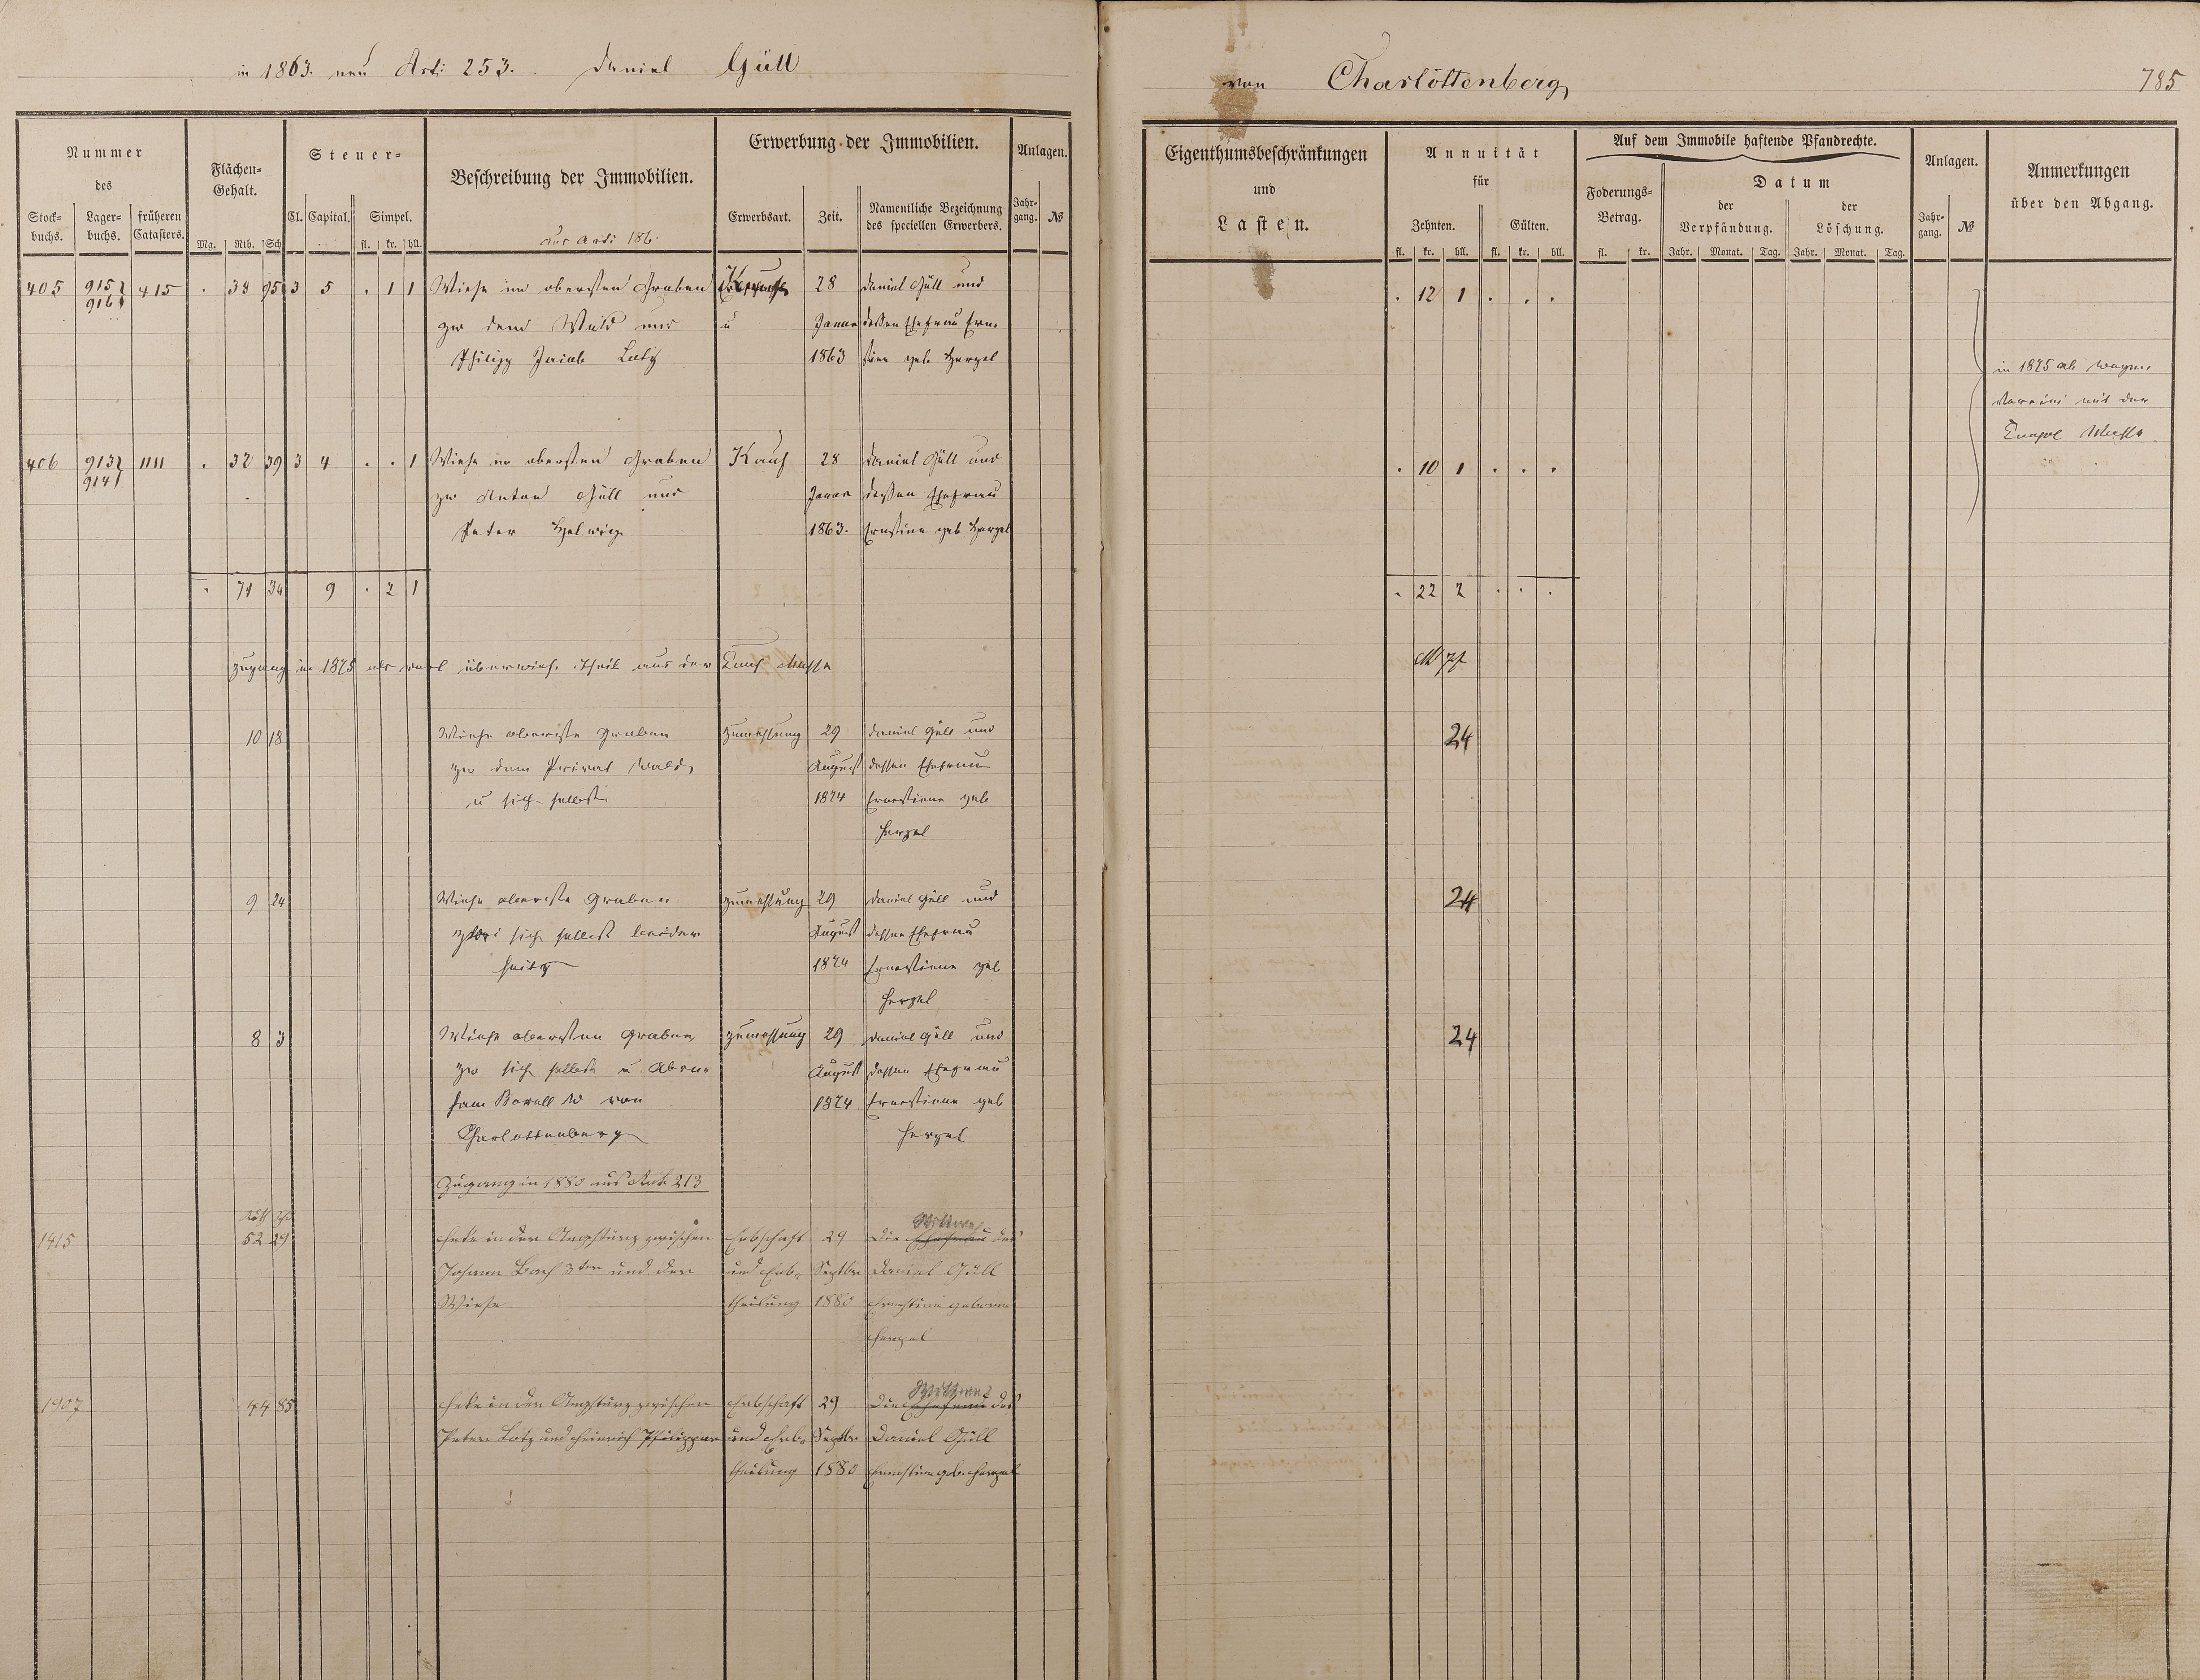 in 1863. neu Arti 253. Daniel Güll
von Charlottenberg
785
Nummer
des
Stock-
buchs.
Lager-
buchs.
früheren
Catasters.
Flächen-
Gehalt.
Mg. Rth. Sch.
Steuer-
Cl. Capital. Simpel.
fl. kr. hll.
Beschreibung der Immobilien.
aus Arti 186.
Erwerbung der Immobilien.
Erwerbsart. Zeit.
Namentliche Bezeichnung
des speciellen Erwerbers.
Anlagen.
Jahr-
gang. №
Eigenthumsbeschränkungen
und
Lasten.
Annuität
für
Zehnten. Gülten.
fl. kr. hll. fl. kr. hll.
Auf dem Immobile haftende Pfandrechte.
Foderungs-
Betrag.
fl. kr.
Datum
der
Verpfändung.
der
Löschung.
Jahr. Monat. Tag. Jahr. Monat. Tag.
Anlagen.
Jahr-
gang. №
Anmerkungen
über den Abgang.
405 915 415 . 38 95 3 5 . 1 1 Wiese im obersten Graben 28 Daniel Güll und . 12 1 . . .
916 zw dem Wald und u Januar dessen Ehefrau Erne
Philipp Jacob Lotz 1863 stine geb Hergel
in 1875 als
mit der
Masse
406 913 1111 . 32 39 3 4 . . 1 Wiese im obersten Graben Kauf 28 Daniel Güll und . 10 1 . . .
914 zw Anton Güll und Januar dessen Ehefrau
Peter Helwig 1863. Ernstine geb Hergel
. 71 34 9 . 2 1 . 22 2 . . .
Zugang in 1875 als überwies. Theil aus der Masse
10 18 Wiese oberste Graben Zumessung 29 Daniel Güll und 24
zw dem Privat Wald August dessen Ehefrau
u sich selbst 1874 Ernestiene geb
Hergel
9 24 Wiese oberste Graben Zumessung 29 Daniel Güll und 24
sich selbst beider August dessen Ehefrau
seits 1874 Ernestiene geb
Hergel
8 3 Wiese obersten Graben Zumessung 29 Daniel Güll und 24
zw sich selbst u Abra- August dessen Ehefrau
ham von 1874 Ernestiene geb
Charlottenberg Hergel
Zugang in 1880 aus Art. 213
Rth Sch
1415 52 29 Hecke in der zwischen Erbschaft 29 Die Ehefrau des
Wittwe
Johann Bach 3ter und der und Erb- Septbr Daniel Güll
Wiese theilung 1880 Ernestine geborne
Hergel
1907 44 85 Hecke in der zwischen Erbschaft 29 Die Ehefrau des
Wittwe
Peter Lotz und Heinrich und Erb- Septbr Daniel Güll
theilung 1880 Ernestine geb. Hergel